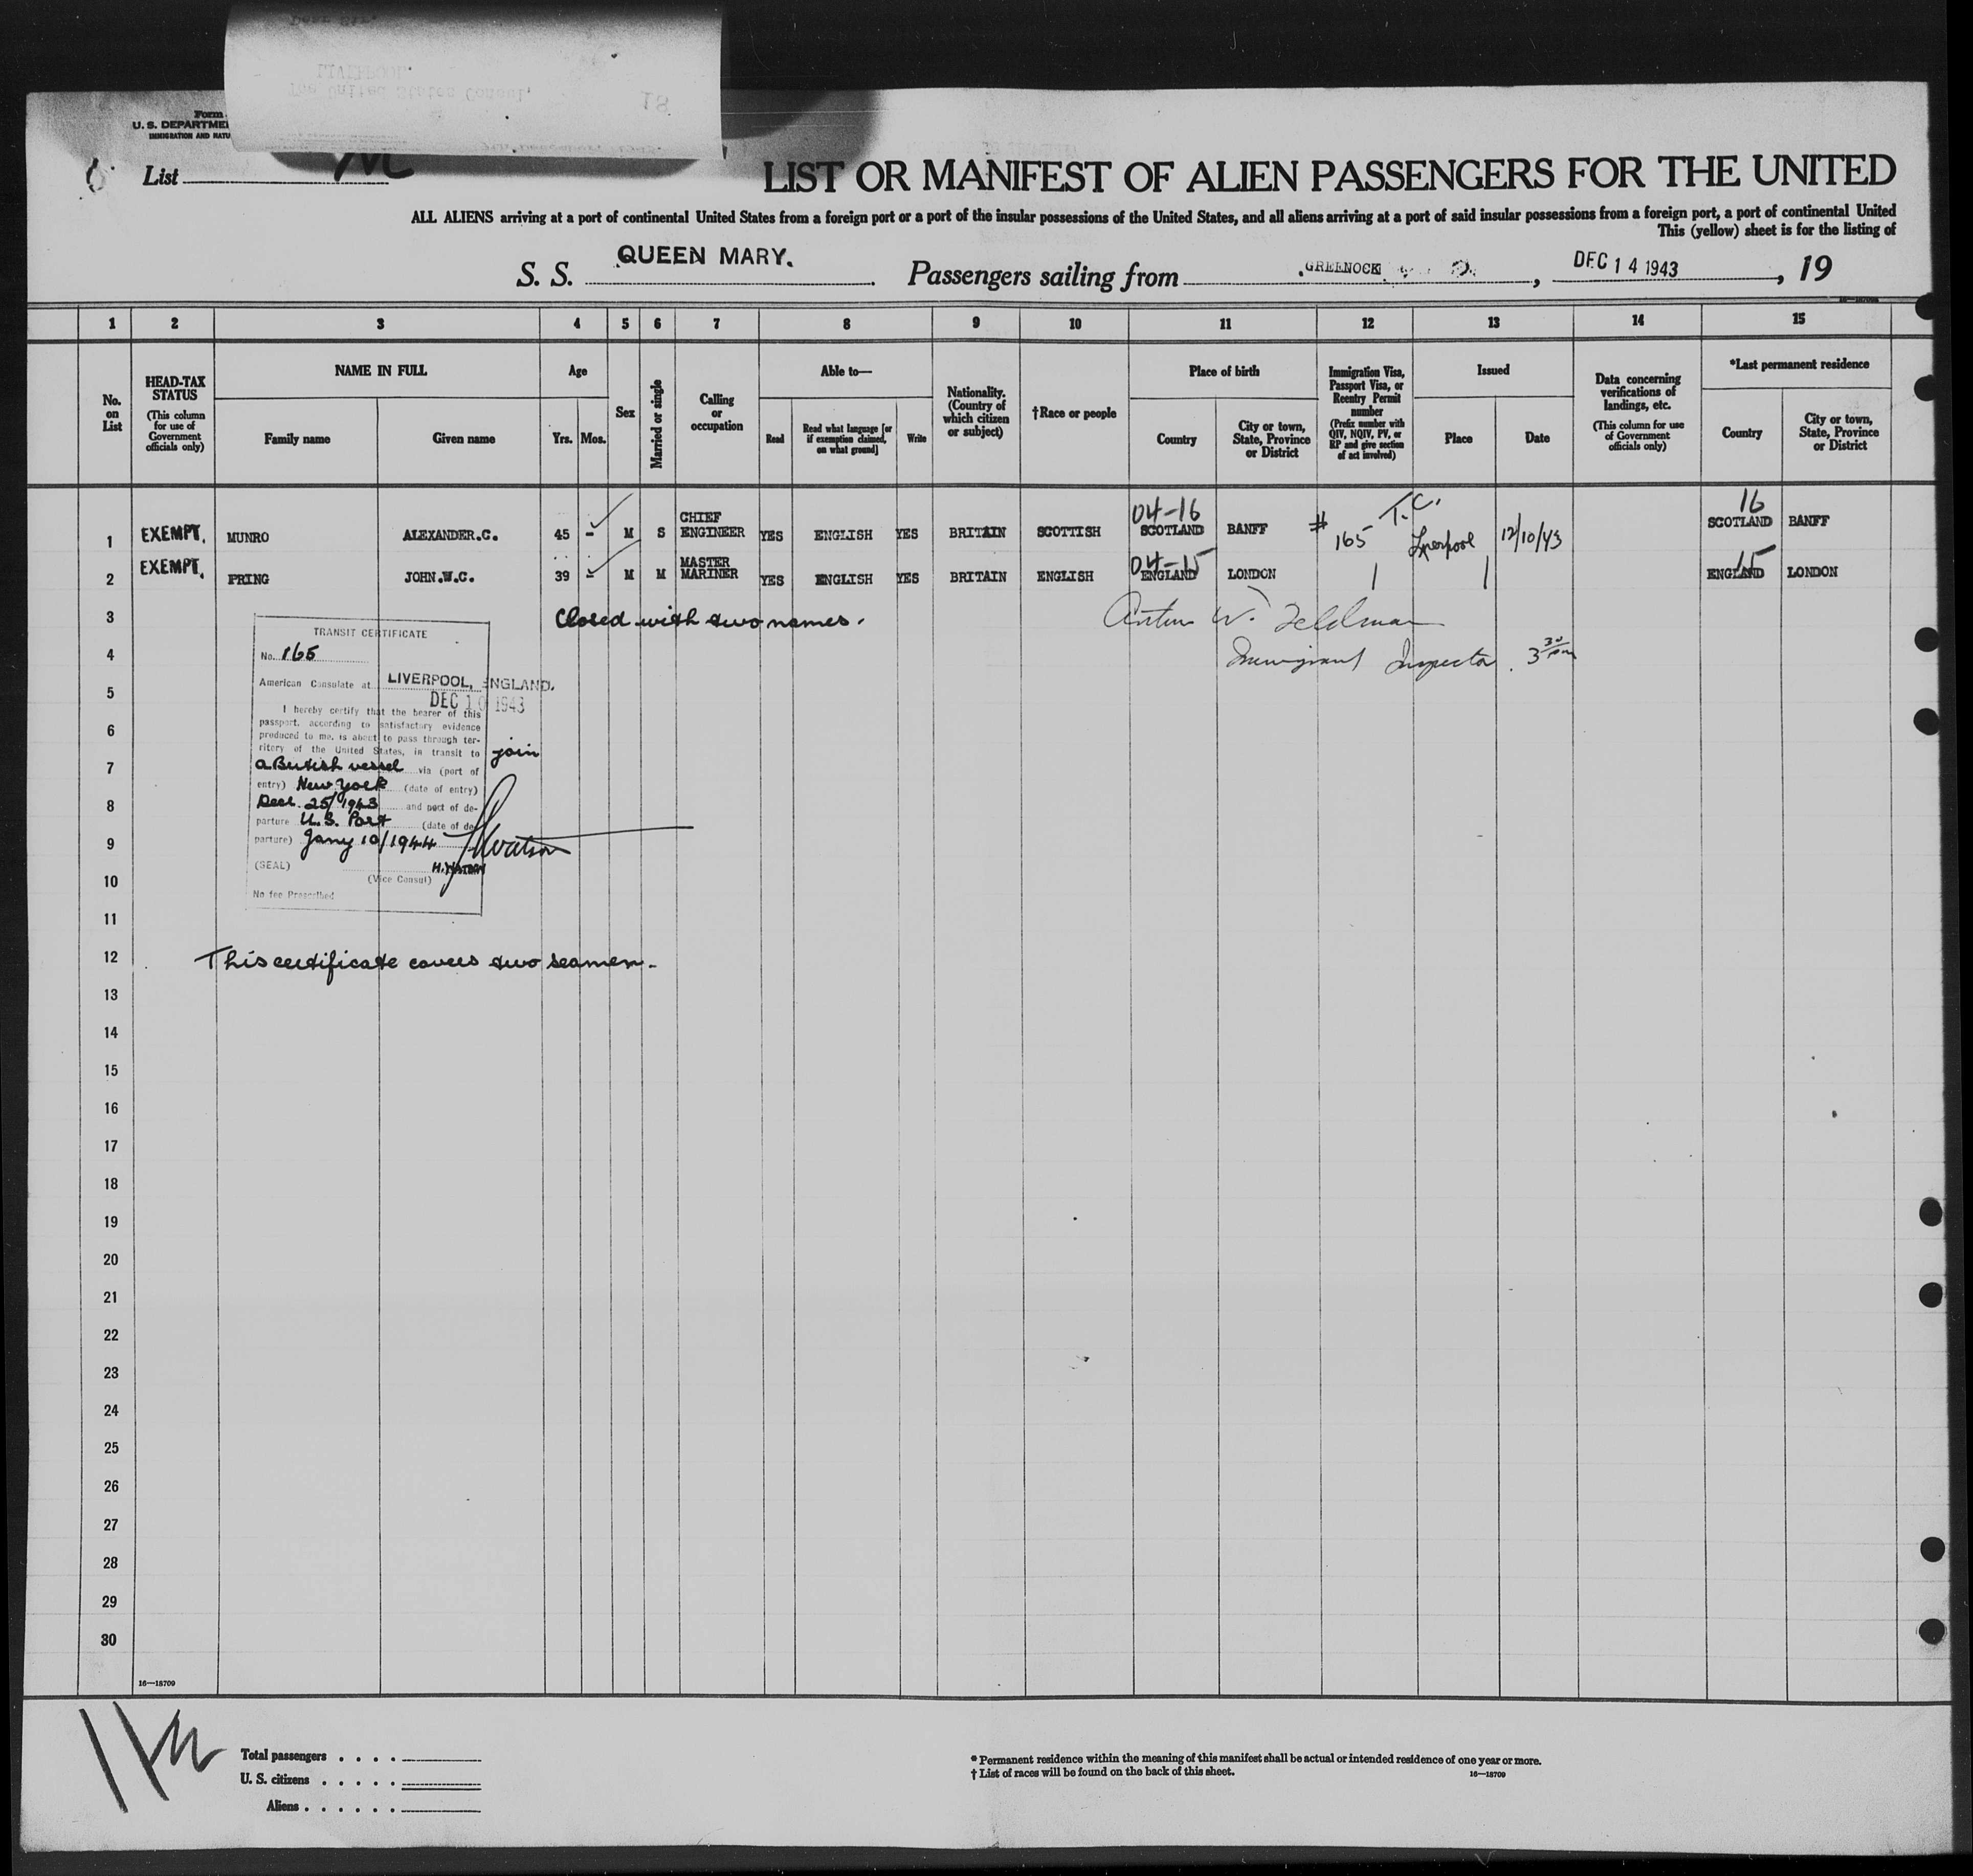 The United States Consul,
LIVERPOOL.
18
Form
U. S. DEPARTME
IMMIGRATION AND NATU
List M
LIST OR MANIFEST OF ALIEN PASSENGERS FOR THE UNITED
ALL ALIENS arriving at a port of continental United States from a foreign port or a port of the insular possessions of the United States, and all aliens arriving at a port of said insular possessions from a foreign port, a port of continental United
This (yellow) sheet is for the listing of
S. S. QUEEN MARY. Passengers sailing from GREENOCK, DEC 14 1943, 19
1 2 3 4 5 6 7 8 9 10 11 12 13 14 15
No. on List
HEAD-TAX STATUS (This column for use of Government officials only)
NAME IN FULL
Family name Given name
Age
Yrs. Mos.
Sex
Married or single
Calling or occupation
Able to—
Read
Read what language [or if exemption claimed, on what ground]
Write
Nationality. (Country of which citizen or subject)
†Race or people
Place of birth
Country
City or town, State, Province or District
Immigration Visa, Passport Visa, or Reentry Permit number (Prefix number with QIV, NQIV, PV, or RP and give section of act involved)
Issued
Place Date
Data concerning verifications of landings, etc. (This column for use of Government officials only)
*Last permanent residence
Country
City or town, State, Province or District
04-16 T.C. 16
1 EXEMPT. MUNRO ALEXANDER.C. 45 - M S CHIEF ENGINEER YES ENGLISH YES BRITAIN SCOTTISH SCOTLAND BANFF # 165 Liverpool 12/10/43 SCOTLAND BANFF
04-15 15
2 EXEMPT. PRING JOHN.W.C. 39 - M M MASTER MARINER YES ENGLISH YES BRITAIN ENGLISH ENGLAND LONDON ENGLAND LONDON
3 Closed with two names. Arthur W. Feldman
4 Immigrant Inspector. 3 30 pm
TRANSIT CERTIFICATE
No. 165
American Consulate at LIVERPOOL, ENGLAND.
DEC 10 1943
I hereby certify that the bearer of this
passport, according to satisfactory evidence
produced to me, is about to pass through ter-
ritory of the United States, in transit to join
a British vessel via (port of
entry) New York (date of entry)
Dec. 25/1943 and port of de-
parture U.S. Port (date of de-
parture) Jany 10/1944 HWatson
(SEAL) H. WATSON
(Vice Consul)
No fee Prescribed
5
6
7
8
9
10
11
12 This certificate covers two seamen.
13
14
15
16
17
18
19
20
21
22
23
24
25
26
27
28
29
30
16—18709
Total passengers . . . .
U. S. citizens . . . . .
Aliens . . . . . .
* Permanent residence within the meaning of this manifest shall be actual or intended residence of one year or more.
† List of races will be found on the back of this sheet.
16—18709